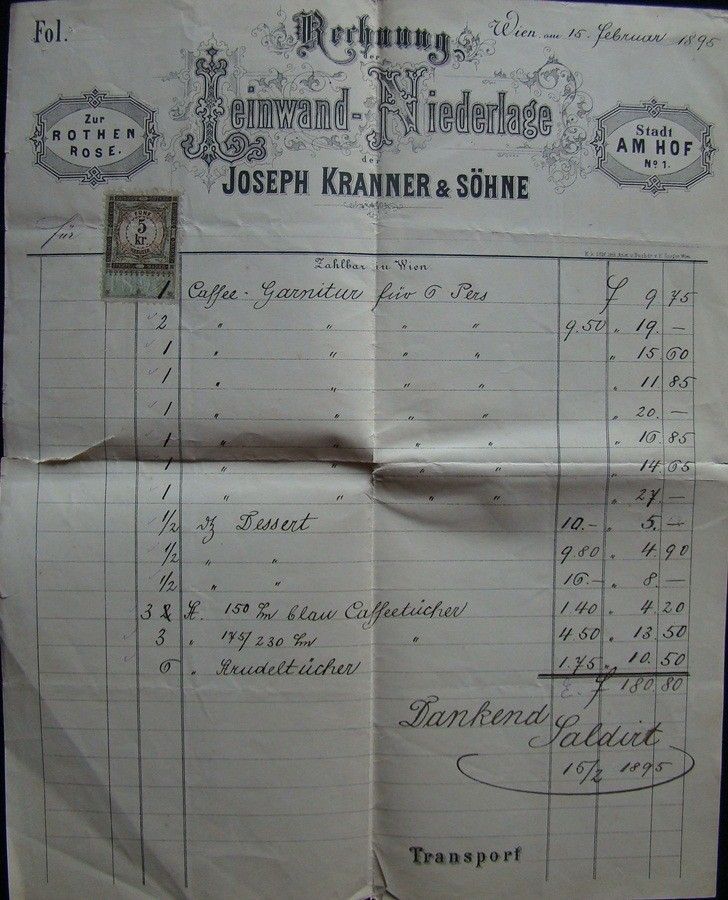 Fol.
Rechnung
Wien, am 15. Februar 1895
der
Leinwand-Niederlage
Zur
ROTHEN
ROSE.
Stadt
AM HOF
No 1.
der
JOSEPH KRANNER & SÖHNE
für
5
kr.
Zahlbar in Wien
1 Caffee-Garnitur für 6 Pers f 9 75
2 " " " " 9.50 " 19. —
1 " " " " " 15.60
1 " " " " " 11.85
1 " " " " " 20. —
1 " " " " " 16.85
1 " " " " " 14.65
1 " " " " " 27. —
1/2 dz Dessert 10.- " 5. —
1/2 " " 9.80 " 4.90
1/2 " " 16.- " 8. —
3 St. 150 blau Caffeetücher 1.40 " 4.20
3 " 175/230 " 4.50 " 13.50
6 " Strudeltücher 1.75 " 10.50
f 180.80
Dankend
Saldirt
15/2 1895
Transport